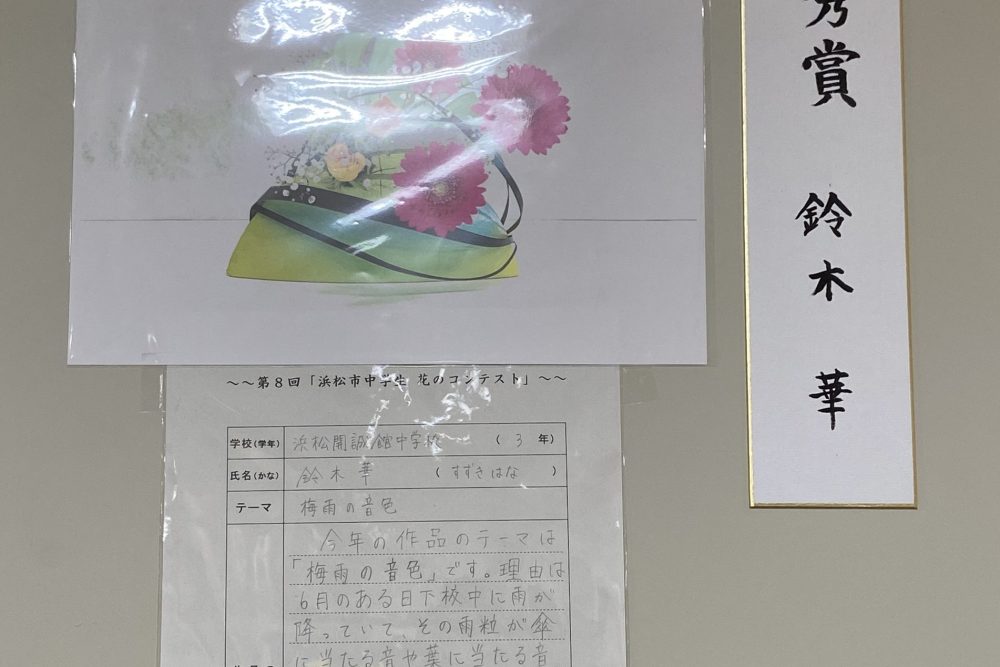 秀賞 鈴木 華
～～第8回「浜松市中学生 花のコンテスト」～～
学校(学年) 浜松開誠館中学校 ( 3 年)
氏名(かな) 鈴木 華 ( すずき はな )
テーマ 梅雨の音色
今年の作品のテーマは
「梅雨の音色」です。理由は
6月のある日下校中に雨が
降っていて、その雨粒が傘
に当たる音や葉に当たる音